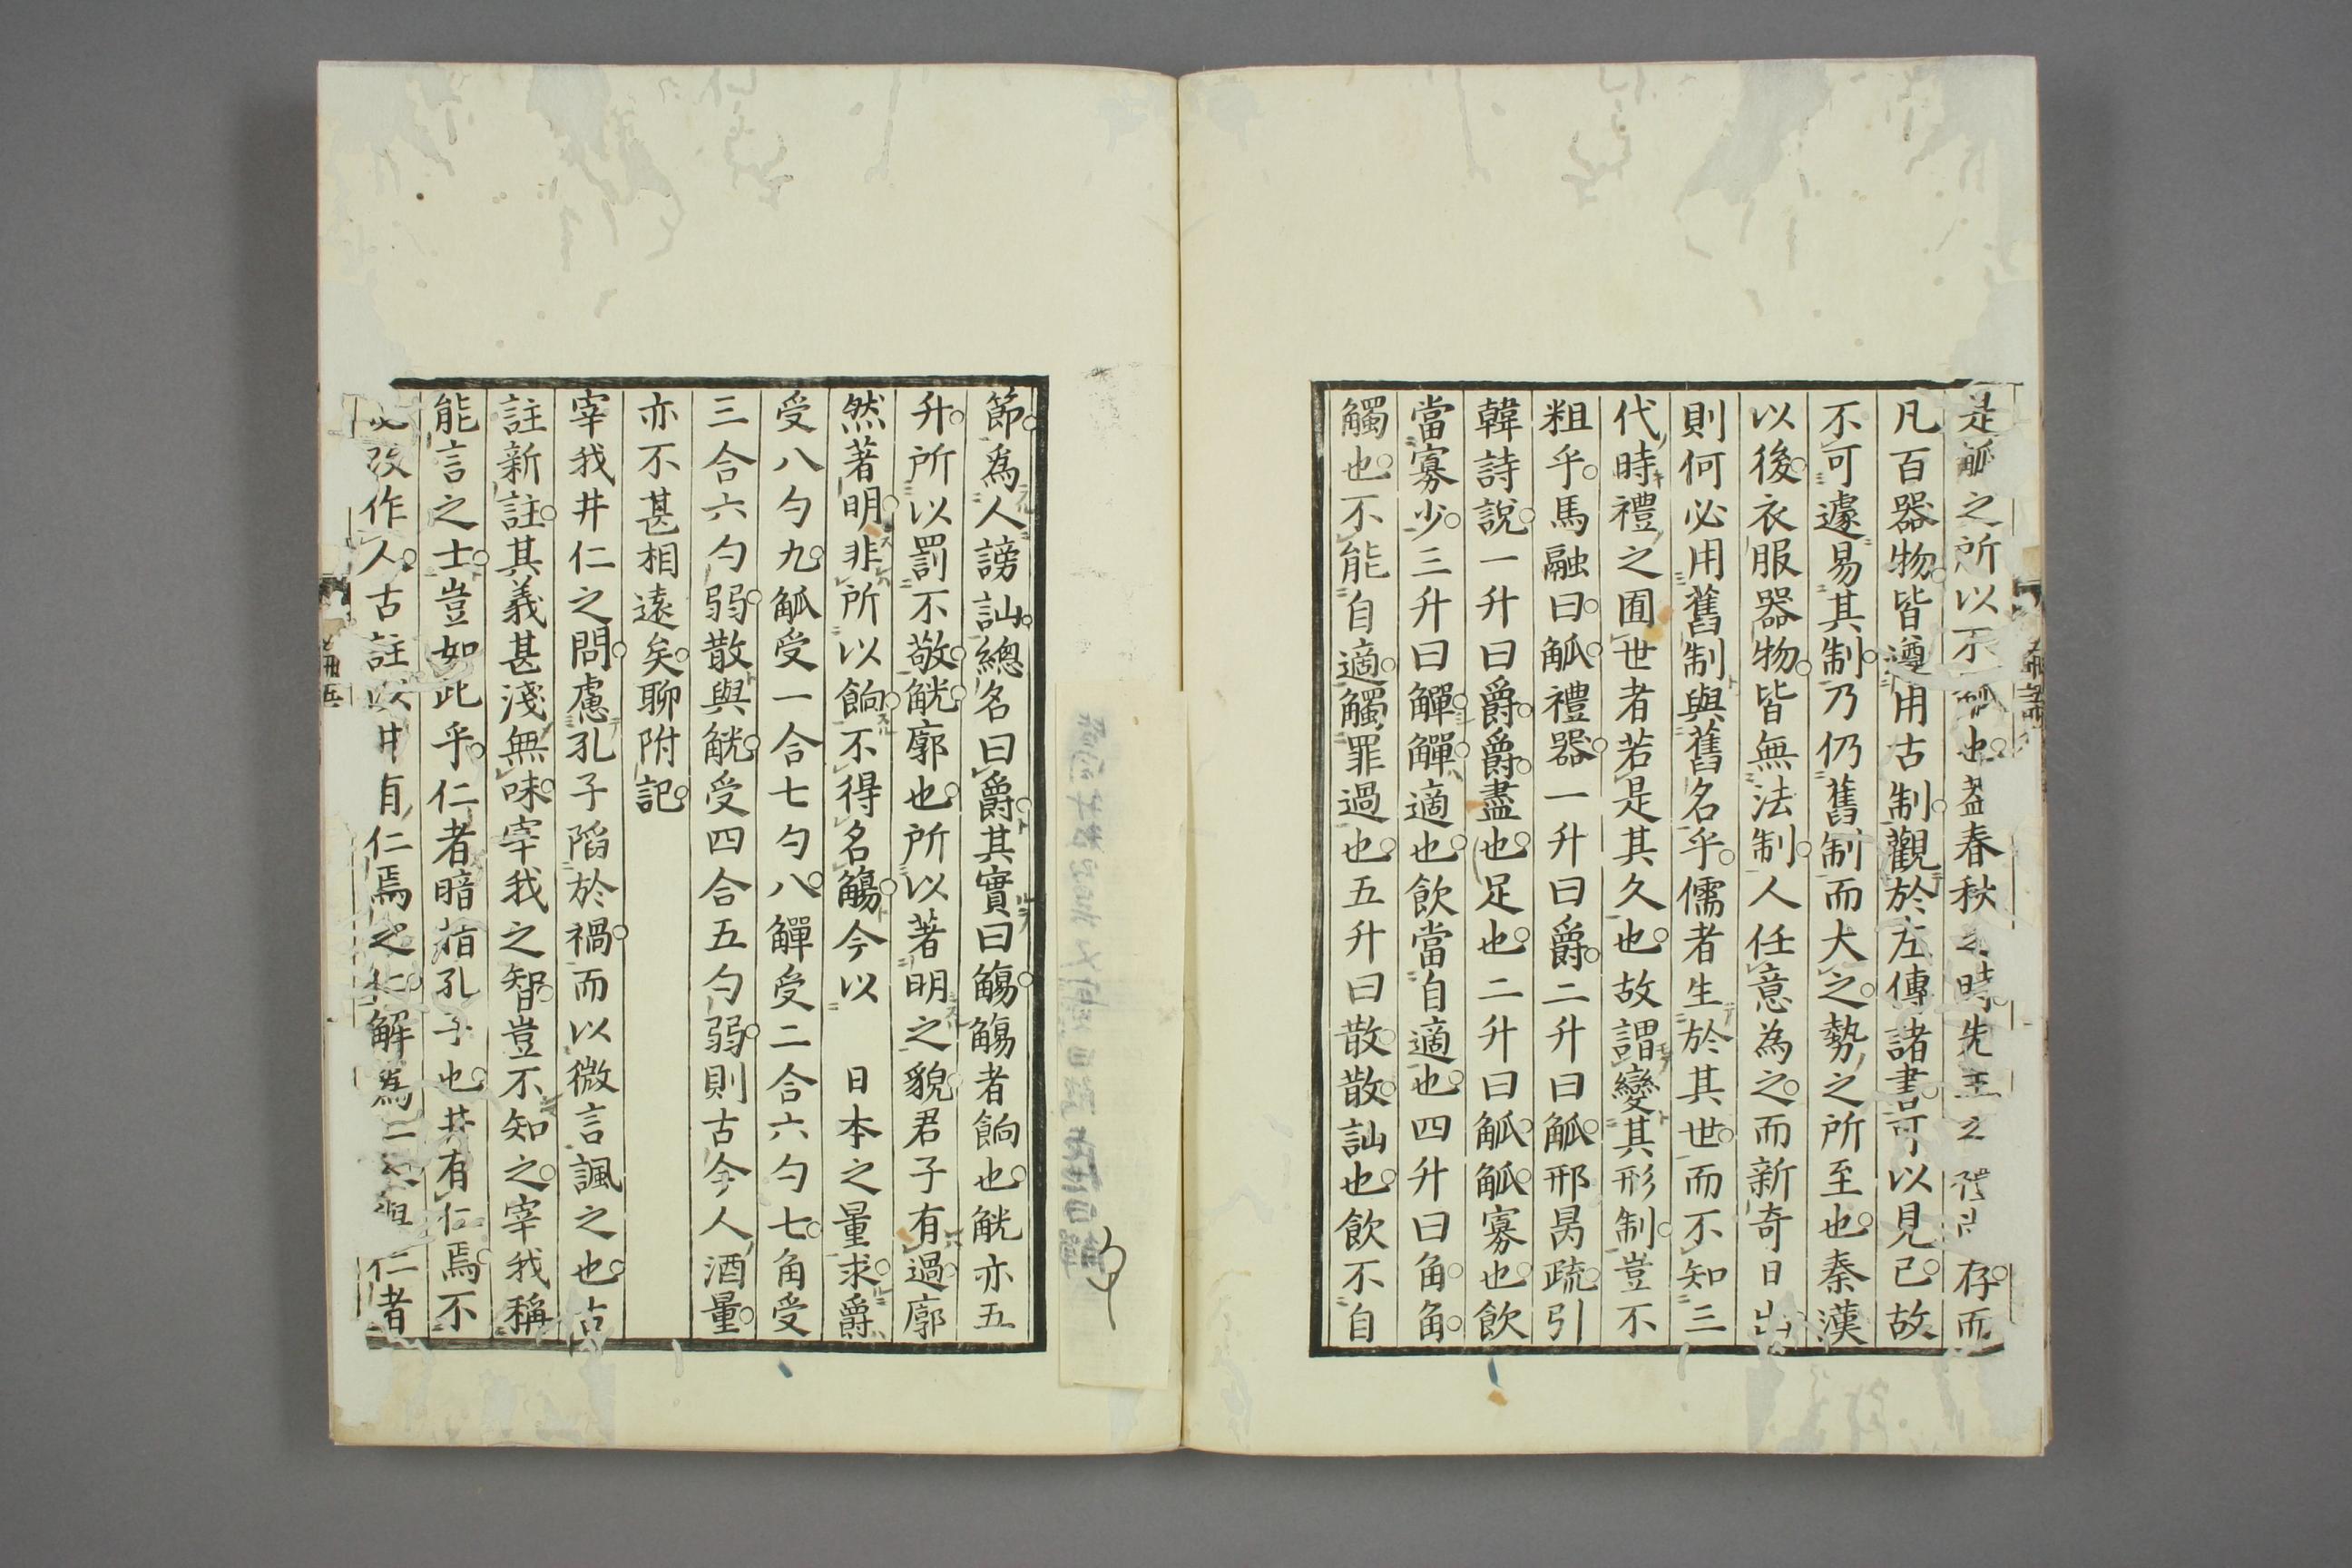 是觚之所以不觚也盖春秋之時先王之禮尚存而
凡百器物皆遵用古制觀於左傳諸書可以見已故
不可遽易其制乃仍舊制而大之勢之所至也秦漢
以後衣服器物皆無法制人任意為之而新奇日出
則何必用舊制與舊名乎儒者生於其世而不知三
代時禮之囿世者若是其久也故謂變其形制豈不
粗乎馬融曰觚禮器一升曰爵二升曰觚邢昺疏引
韓詩說一升曰爵爵盡也足也二升曰觚觚寡也飲
當寡少三升曰觶觶適也飲當自適也四升曰角角
觸也不能自適觸罪過也五升曰散散訕也飲不自
節爲人謗訕總名曰爵其實曰觴觴者餉也觥亦五
升所以罰不敬觥廓也所以著明之貌君子有過廓
然著明非所以餉不得名觴今以 日本之量求爵
受八勺九觚受一合七勺八觶受二合六勺七角受
三合六勺弱散與觥受四合五勺弱則古今人酒量
亦不甚相遠矣聊附記
宰我井仁之問慮孔子陷於禍而以微言諷之也古
註新註其義甚淺無味宰我之智豈不知之宰我稱
能言之士豈如此乎仁者暗指孔子也井有仁焉不
必改作人古註以井有仁焉之仁解爲仁人但仁者